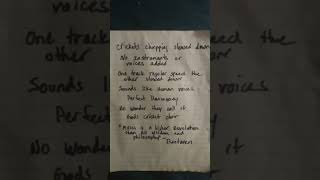 Crickets chirping slowed down
No instruments or
voices added
One track regular speed the
other slowed down
Sounds like human voices
Perfect Harmony
No wonder they call it
Gods cricket choir
"Music is a higher revelation
than all wisdom and
philosophy" -
Beethoven